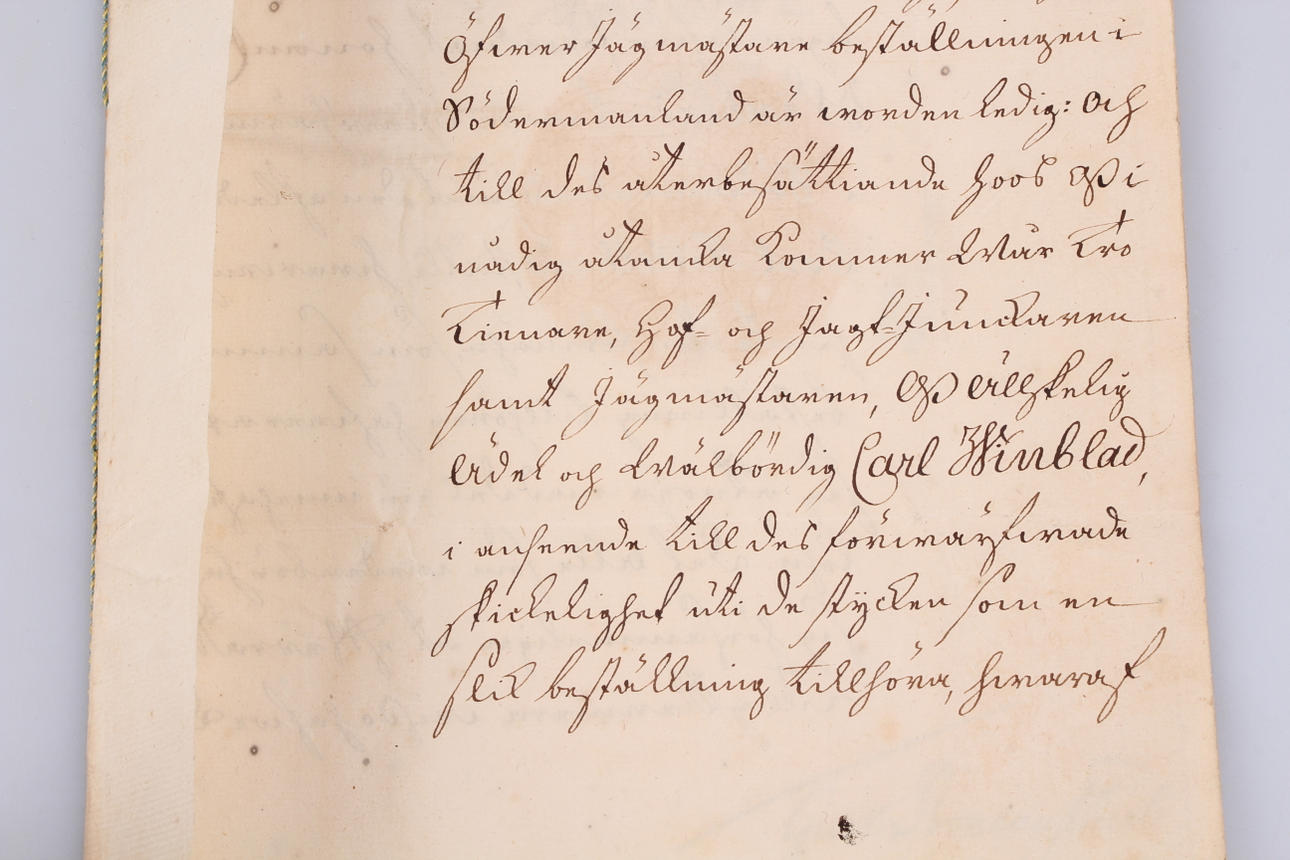 Öfwer Jägmästare beställningen i
Södermanland är worden ledig: och
till des återbesättiande hoos Oß i
nådig åtancka kommer Wår Tro
Tienare, Hof- och Jagt-Junckaren
samt Jägmästaren, Oß Ällskelig
Ädel och Wälbördig Carl Winblad,
i anseende till des förwärfwade
skickelighet uti de stycken som en
slik beställning tillhöra, hwaraf